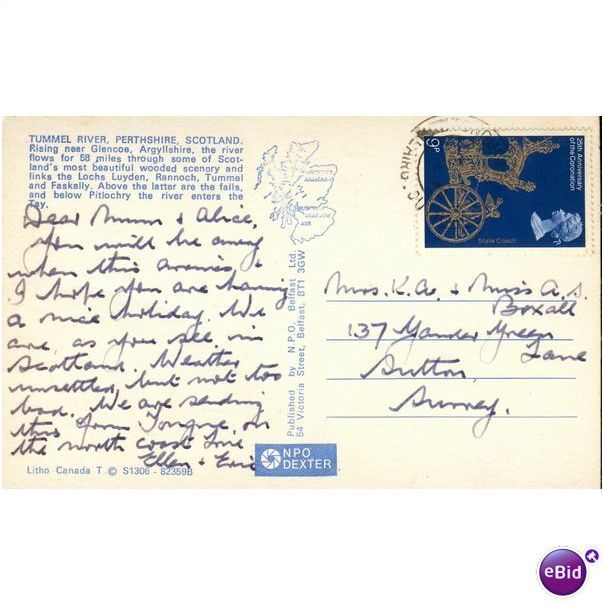 TUMMEL RIVER, PERTHSHIRE, SCOTLAND.
Rising near Glencoe, Argyllshire, the river
flows for 58 miles through some of Scot-
land's most beautiful wooded scenery and
links the Lochs Luyden, Rannoch, Tummel
and Faskally. Above the latter are the falls,
and below Pitlochry the river enters the
Tay.
Dear Mum & Alice,
You will be away
when this arrives &
I hope you are having
a nice holiday. We
are as you see in
Scotland. Weather
unsettled, but not too
bad. We are sending
this from Tongue, on
the north coast Love
Ellen & Eric
Litho Canada T © S1306 - 82359B
Published by N.P.O. Belfast Ltd.
54 Victoria Street, Belfast, BT1 3GW
NPO
DEXTER
9P
25th Anniversary
of the Coronation
State Coach
Mrs. K.A. & Miss A.S.
Boxall
137 Gander Green
Lane
Sutton,
Surrey.
eBid